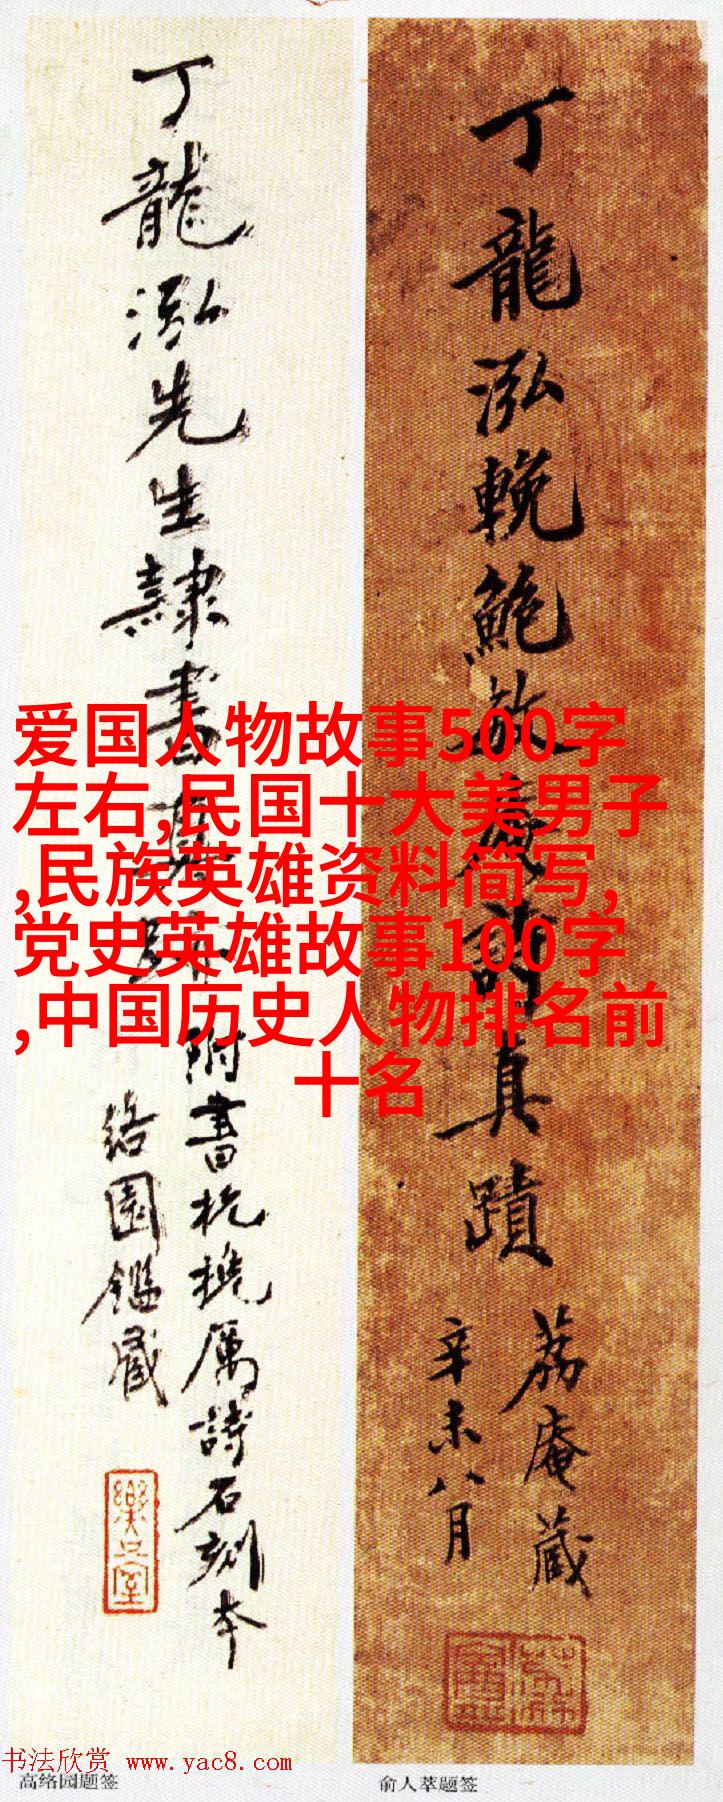 丁龍泓先生隸書真跡
附書杭堇厲詩石刻本
絡園鑑藏
丁龍泓輓鮑敌廬詩真蹟
荔庵藏
辛未八月
爱国人物故事500字
左右,民国十大美男子
,民族英雄资料简写,
党史英雄故事100字
,中国历史人物排名前
十名
书法欣赏 www.yac8.com
高络园题签
俞人萃题签